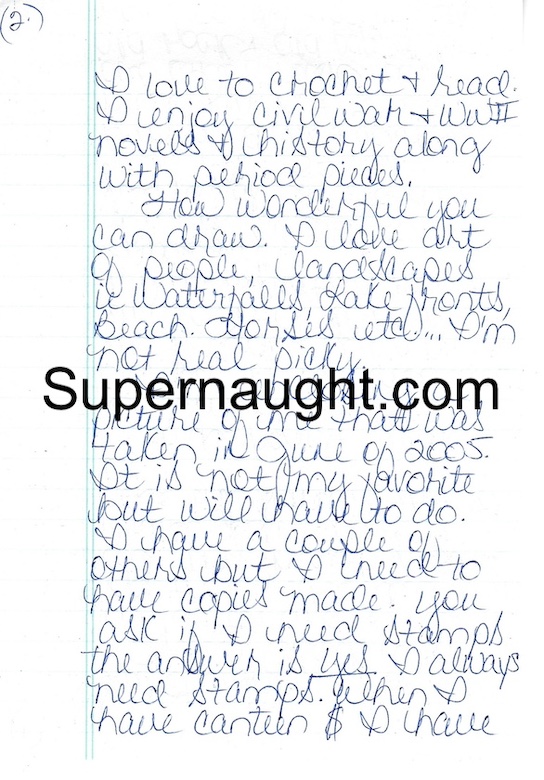 (2.)
I love to crochet & read.
I enjoy civil war & WWII
novels & history along
with period pieces.
How wonderful you
can draw. I love art
of people, landscapes
ie Waterfalls, Lake fronts,
Beach. Horses etc... I'm
not real picky.
Supernaught.com
picture of me that was
taken in June of 2005.
It is not my favorite
but will have to do.
I have a couple of
others but I need to
have copies made. you
ask if I need stamps
the answer is yes I always
need stamps. When I
have canteen $ I have